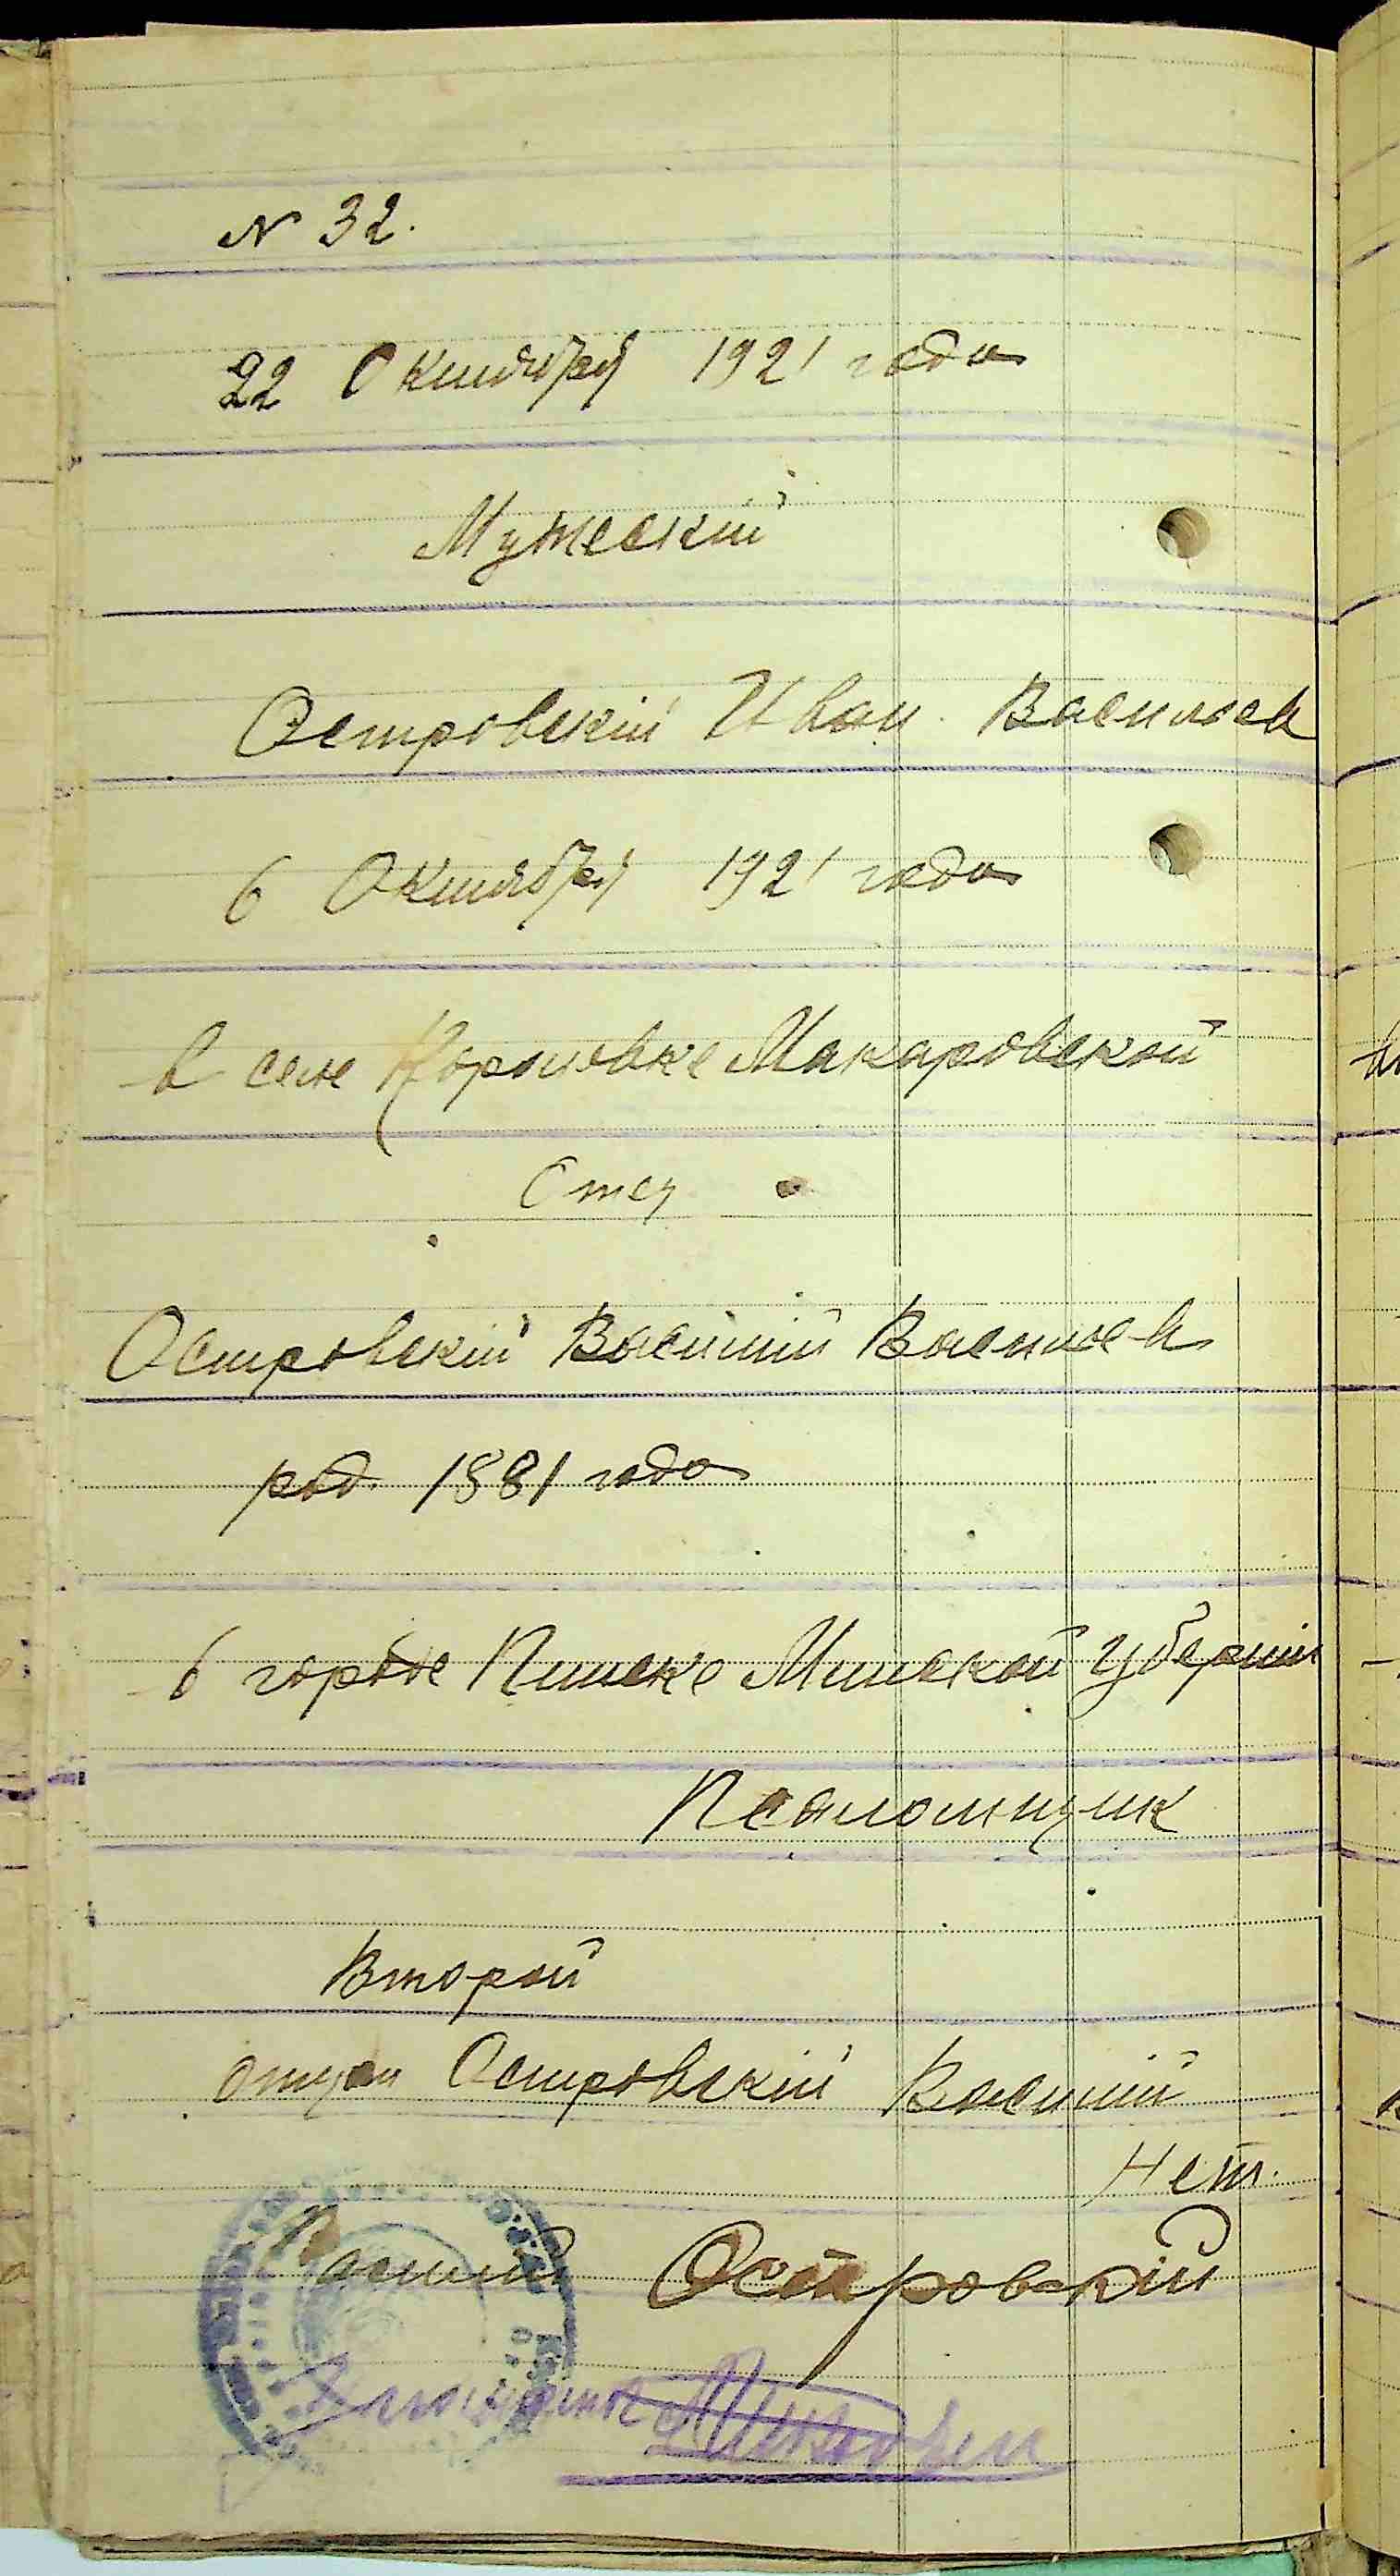 N 32.
22 Октября 1921 года
Мужескій
Островскій Иван Васильев
6 Октября 1921 года
в селе Королевке Макаровской
Отец
Островскій Василий Васильев
род. 1881 года
в городе Пинске Минской губернии
Псаломщик
Второй
отцом Островскій Василий
Нет.
Василий Островскій